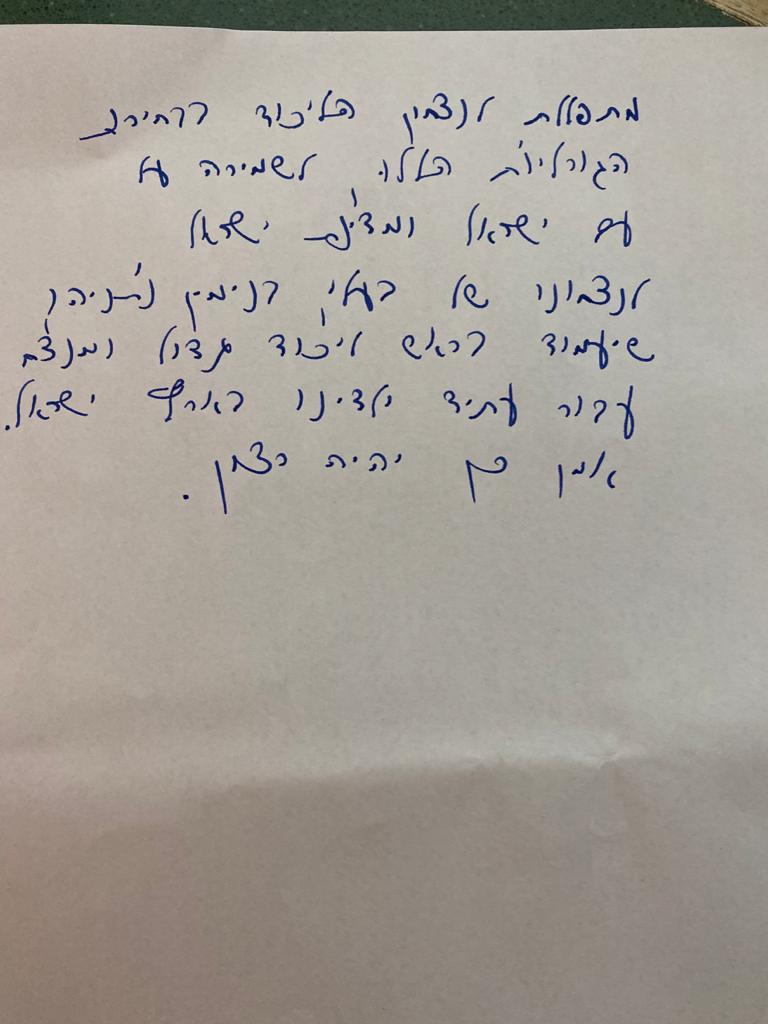 מתפללת לנצחון הליכוד בבחירות
הגורליות הללו. לשמירה על
עם ישראל ומדינת ישראל
לנצחונו של בעלי בנימין נתניהו
שיעמוד בראש ליכוד גדול ומנצח
עבור עתיד ילדינו בארץ ישראל.
אמן כן יהיה רצון.